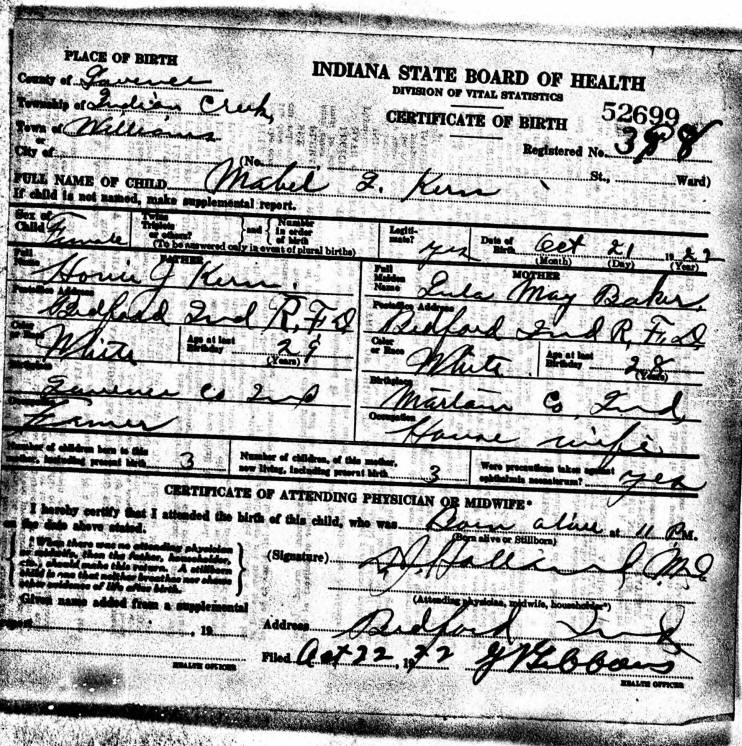 PLACE OF BIRTH
INDIANA STATE BOARD OF HEALTH
DIVISION OF VITAL STATISTICS
County of
Township of Indian Creek,
52699
CERTIFICATE OF BIRTH
Town of Williams
or
Registered No. 398
City of (No. St., Ward)
FULL NAME OF CHILD Mabel I. Kern
If child is not named, make supplemental report.
Sex of Child Female
Twins Triplets or others? and Number in order of birth
(To be answered only in event of plural births)
Legiti-mate? yes
Date of Birth Oct 21 1922
(Month) (Day) (Year)
FATHER
MOTHER
Full Name J Kern.
Full Maiden Name Lula May Baker,
Postoffice Address Bedford Ind R, F. D
Postoffice Address Bedford Ind R, F. D,
Color or Race White
Age at last Birthday 29 (Years)
Color or Race White
Age at last Birthday 28 (Years)
Birthplace Co Ind
Birthplace Martain Co, Ind,
Farmer
Occupation House wife
Number of children born to this mother, including present birth 3
Number of children, of this mother, now living, including present birth 3
Were precautions taken against ophthalmia neonatorum? yes
CERTIFICATE OF ATTENDING PHYSICIAN OR MIDWIFE*
I hereby certify that I attended the birth of this child, who was Born alive at 11 P.M.
on the date above stated.
(Born alive or Stillborn)
*When there was no attending physician
or midwife, then the father, householder,
etc., should make this return. A stillborn
child is one that neither breathes nor shows
other evidence of life after birth.
(Signature) Holland M.D.
(Attending physician, midwife, householder*)
Given name added from a supplemental
report , 19
Address Bedford Ind
Filed Oct 22, 1922 Gibbons
HEALTH OFFICER
HEALTH OFFICER